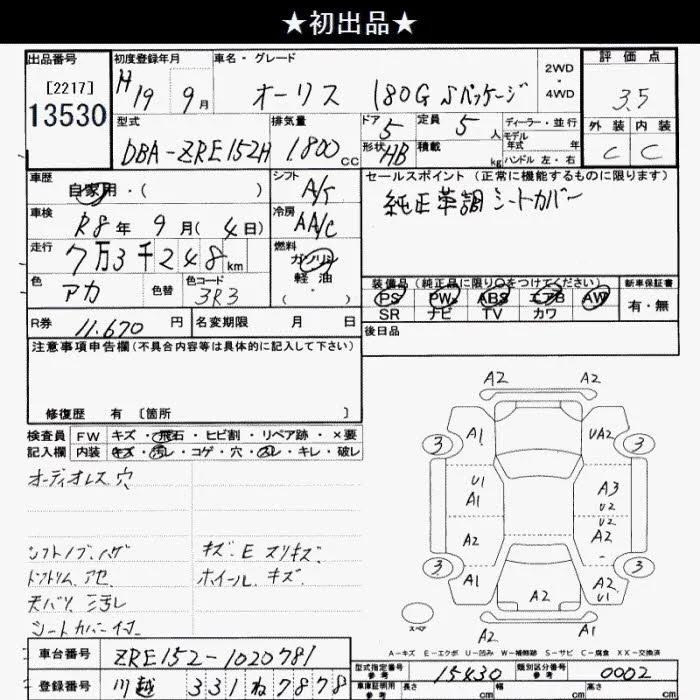 ★初出品★
出品番号
[2217]
13530
初度登録年月
H19 9月
車名・グレード
オーリス 180G Sパッケージ
2WD
・
4WD
評価点
3.5
外装 内装
C C
型式
DBA-ZRE152H
排気量
1,800cc
ドア
5
形状
HB
定員
5人
積載
kg
ディーラー・並行
モデル
年式 年
ハンドル 左・右
車歴
自家用・( )
車検
R8年 9月(4日)
走行
7万3千248km
色
アカ
色替
色コード
3R3
シフト
A/T
冷房
AA/C
燃料
ガソリン
軽油
( ・ )
セールスポイント(正常に機能するものに限ります)
純正革調シートカバー
装備品(純正品に限り○をつけてください)
PS PW ABS エアB AW
SR ナビ TV カワ
新車保証書
有・無
R券 11,670円
名変期限 月 日
後日品
注意事項申告欄(不具合内容等は具体的に記入して下さい)
修復歴 有 [箇所 ]
検査員 FW キズ・飛石・ヒビ割・リペア跡・×要
記入欄 内装 キズ・汚レ・コゲ・穴・スレ・キレ・破レ
オーディオレス穴
シフトノブ、ハゲ キズ、E スリキズ、
アセ ホイール、キズ
天バリ、汚レ
シートカバー付
A2 A2
3 A1 UA2 3
U1 A3
A1 U2
U2
A2 A2
3 A1 A2 A2 3
U2
スペア
A2 A1
A-キズ E-エクボ U-凹み W-補修跡 S-サビ C-腐食 XX-交換済
車台番号 ZRE152-1020781
登録番号 川越 331 ね 7878
型式指定番号
参考
15430
類別区分番号
参考
0002
車庫証明用
参考
長さ cm 幅 cm 高さ cm